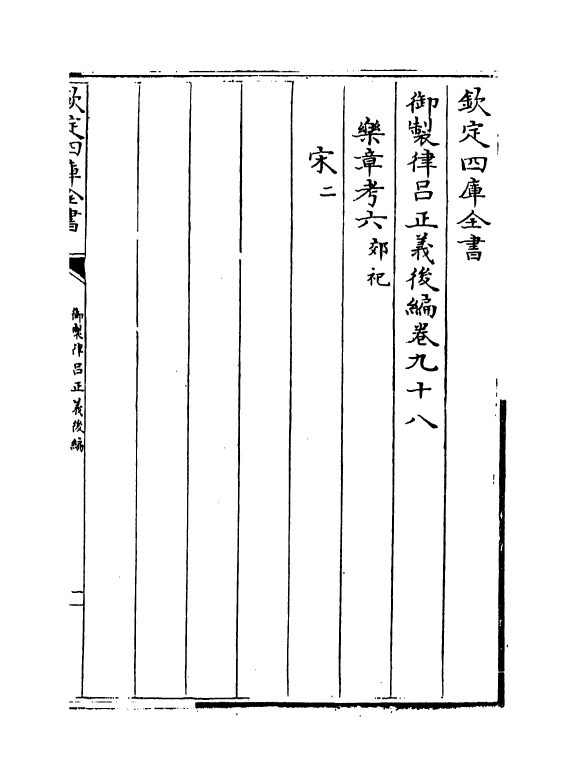 欽定四庫全書
御製律呂正義後編卷九十八
樂章考六郊祀
宋二
欽定四庫全書
御製律呂正義後編